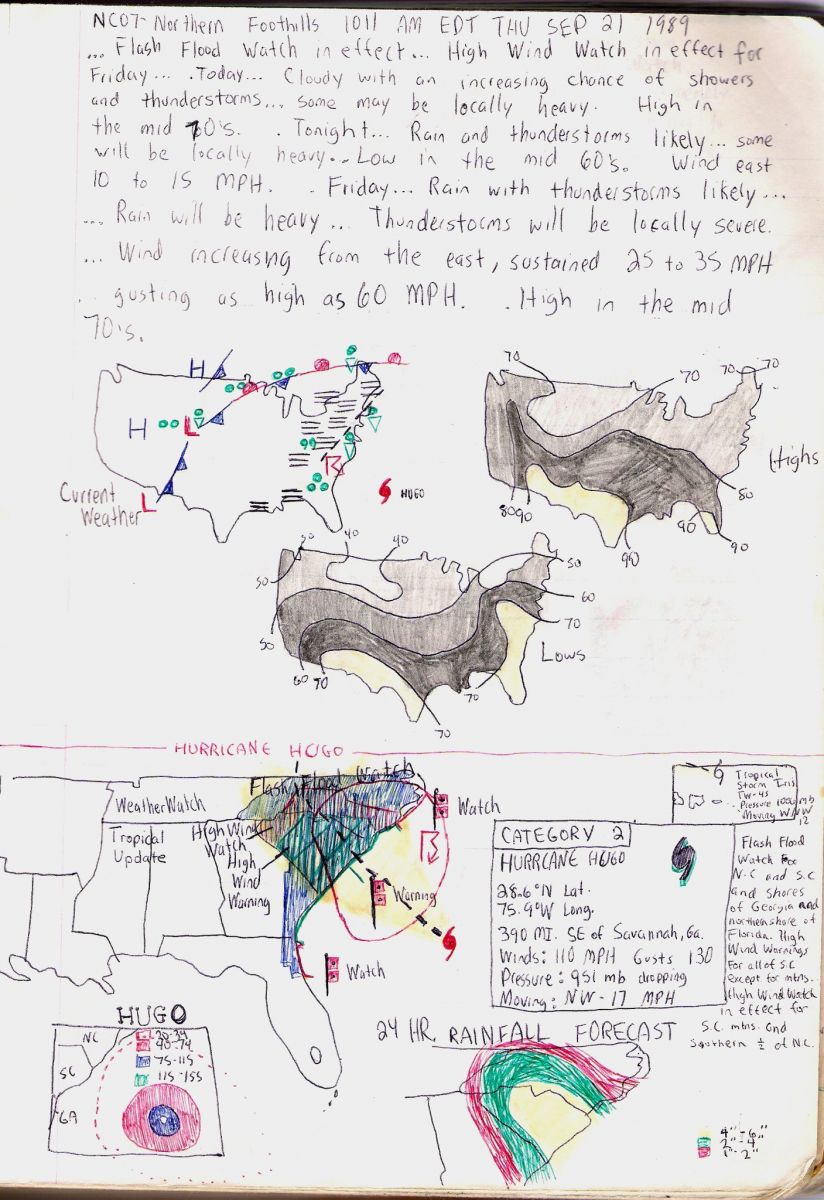 NC07- Northern Foothills 1011 AM EDT THU SEP 21 1989
... Flash Flood Watch in effect... High Wind Watch in effect for
Friday... .Today... Cloudy with an increasing chance of showers
and thunderstorms... some may be locally heavy. High in
the mid 70's. . Tonight... Rain and thunderstorms likely... some
will be locally heavy... Low in the mid 60's. Wind east
10 to 15 MPH. . Friday... Rain with thunderstorms likely...
... Rain will be heavy... Thunderstorms will be locally severe.
... Wind increasng from the east, sustained 25 to 35 MPH
.. gusting as high as 60 MPH. . High in the mid
70's.
H
H
L
L
Current
Weather
HUGO
70
70
70
70
80
80
90
90
90
90
Highs
50
40
40
50
50
50
60
70
60
70
70
70
Lows
HURRICANE HUGO
Flash Flood Watch
WeatherWatch
Tropical
Update
High Wind
Watch
High
Wind
Warning
Watch
Warning
Watch
Tropical
Storm Iris
Pressure 1006 mb
Moving WNW
12
CATEGORY 2
HURRCANE HUGO
28.6°N Lat.
75.9°W Long.
390 MI. SE of Savannah, Ga.
Winds: 110 MPH Gusts 130
Pressure: 951 mb dropping
Moving: NW-17 MPH
Flash Flood
Watch For
N.C and S.C
and shores
of Georgia and
northern shore of
Florida. High
Wind Warnings
For all of S.C
except for mtns.
High Wind Watch
in effect for
S.C. mtns. and
Southern ½ of N.C.
HUGO
NC
SC
GA
75-115
115-155
24 HR. RAINFALL FORECAST
4"-6"
2"-4"
1"-2"